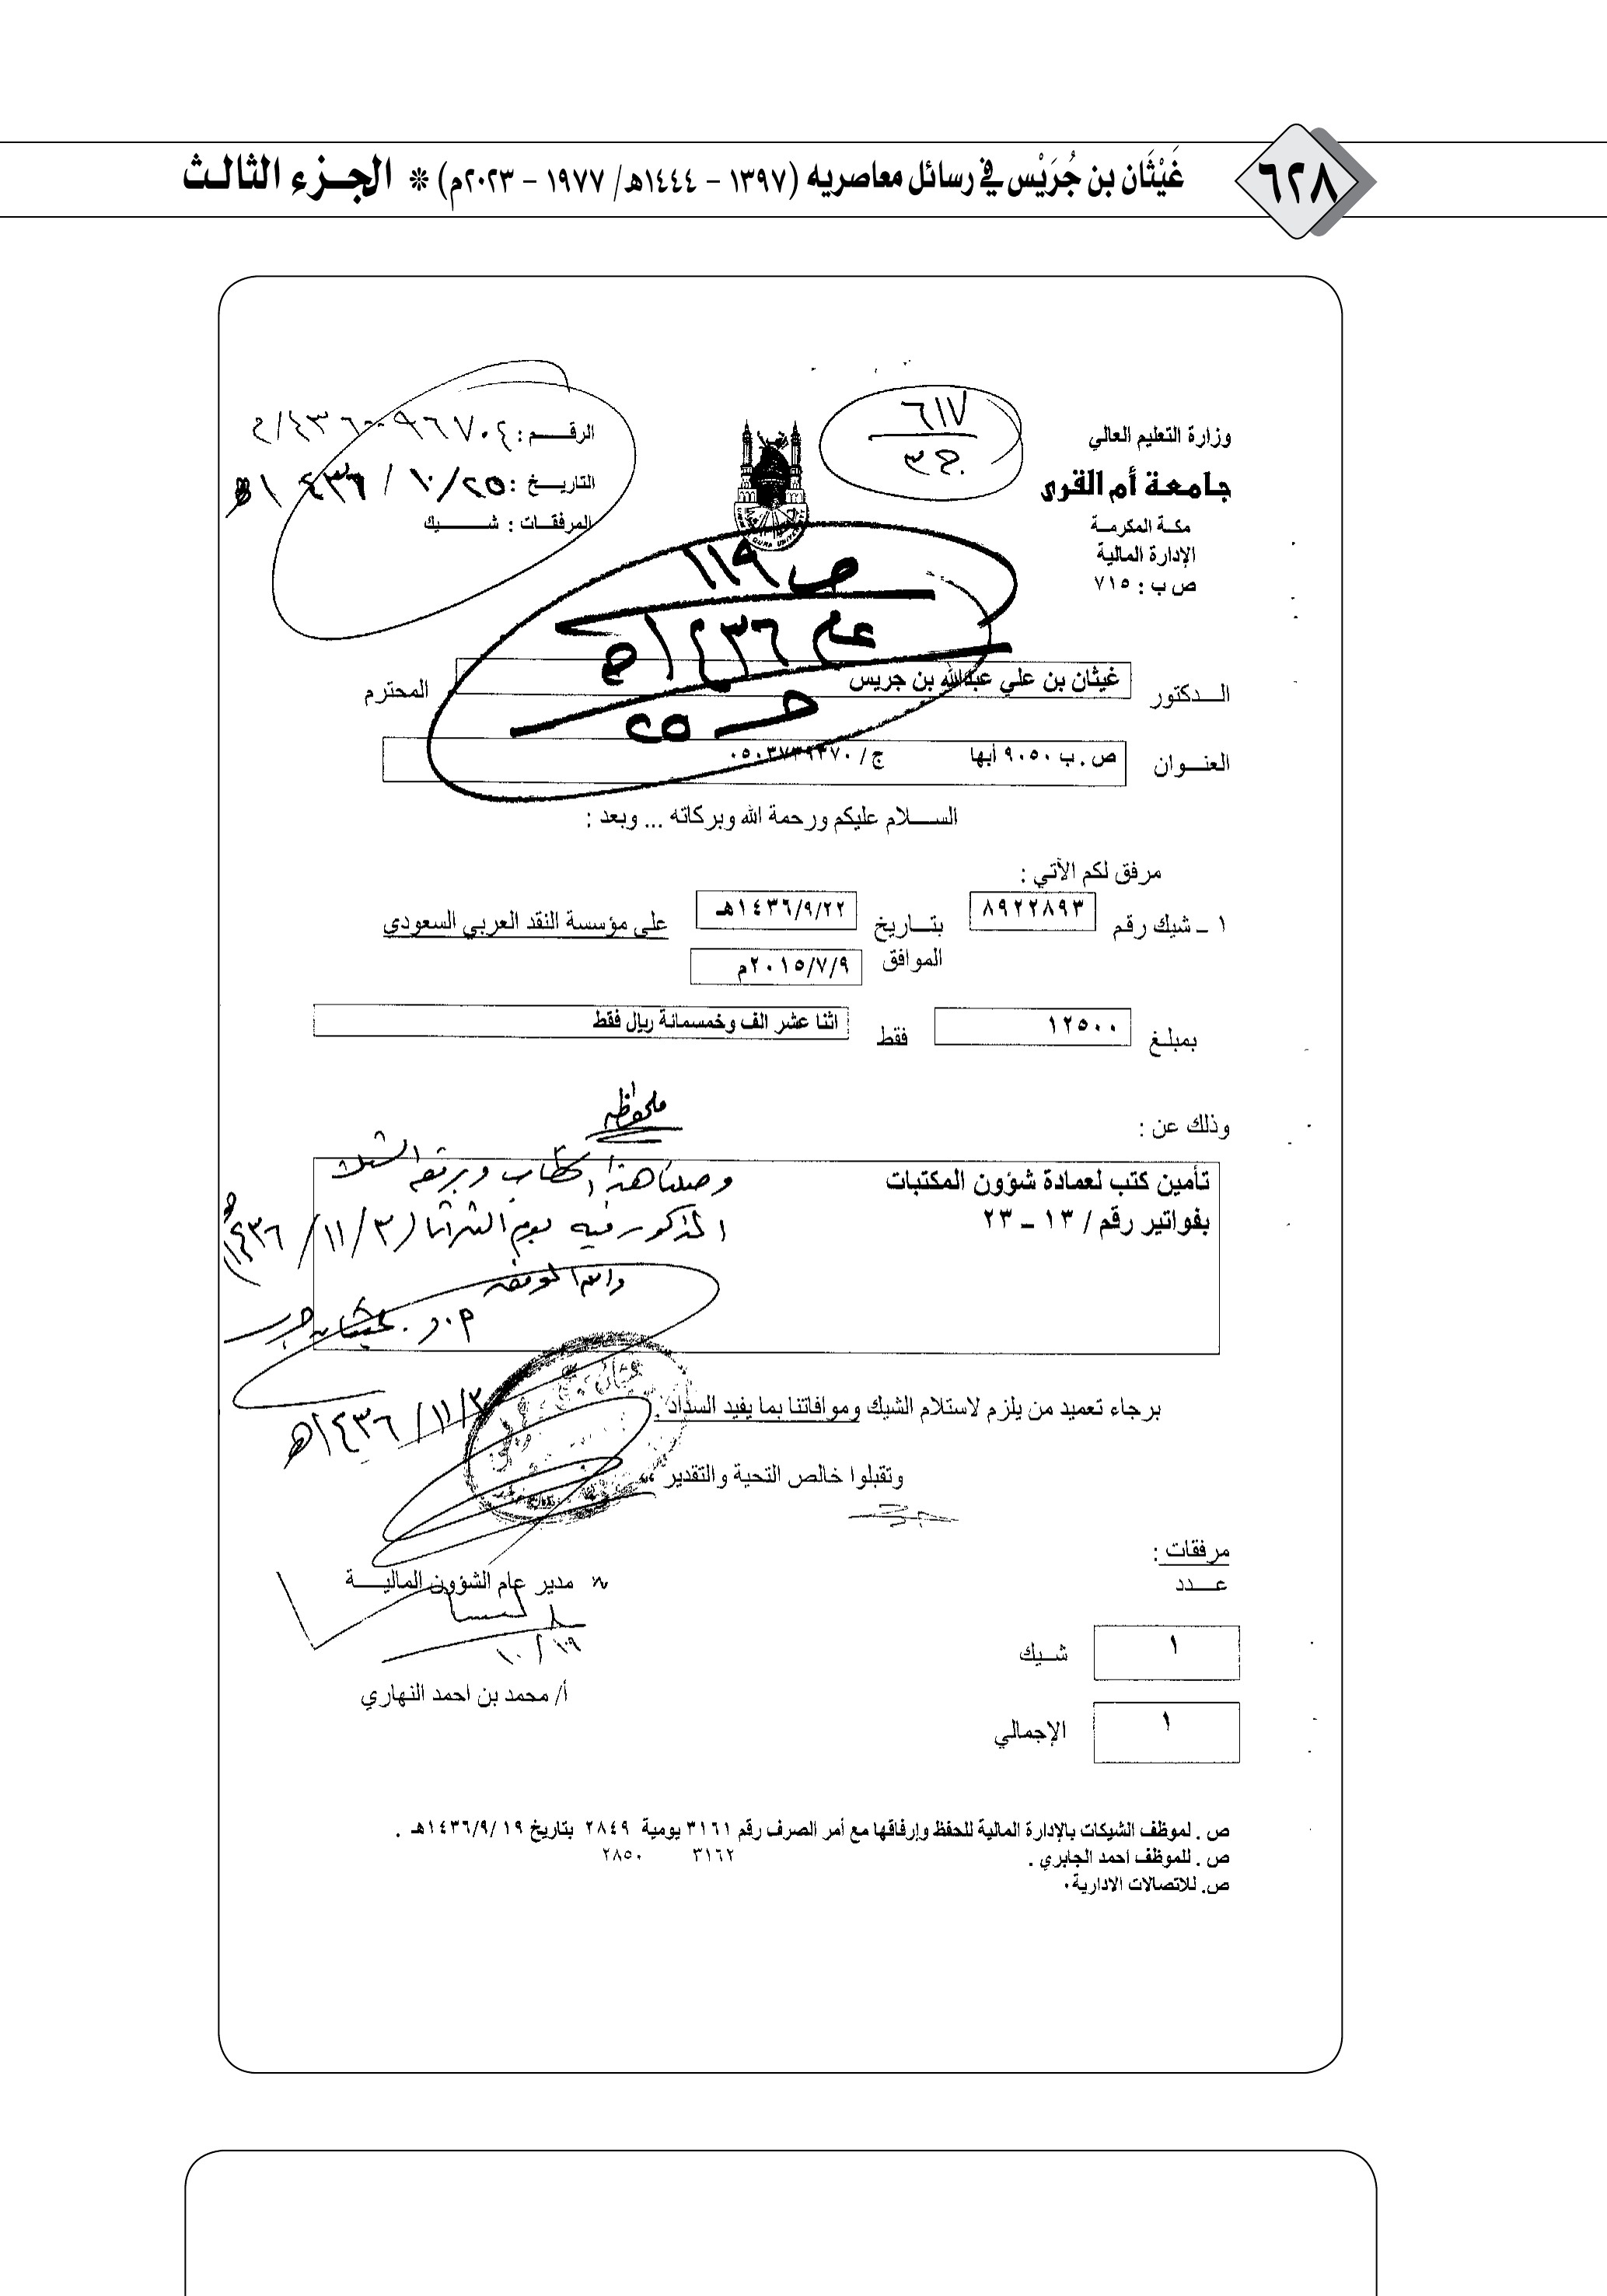 غَيْثَان بن جُرَيْس في رسائل معاصريه (١٣٩٧ - ١٤٤٤هـ/ ١٩٧٧ - ٢٠٢٣م) * الجزء الثالث
٦٢٨
وزارة التعليم العالي
جامعة أم القرى
مكة المكرمة
الإدارة المالية
ص ب : ٧١٥
٦١٧
ج ٣
الرقم :
التاريخ : ١٠/٢٥ / ١٤٣٦هـ
المرفقات : شيك
ص ١١٩
عام ١٤٣٦هـ
الدكتور غيثان بن علي عبدالله بن جريس المحترم
العنوان ص . ب ٩٠٥٠ أبها ج / ٠٥٠٣٧٣٩٣٧٠
السلام عليكم ورحمة الله وبركاته ... وبعد :
مرفق لكم الآتي :
١ - شيك رقم ٨٩٢٢٨٩٣ بتاريخ ١٤٣٦/٩/٢٢هـ على مؤسسة النقد العربي السعودي
الموافق ٢٠١٥/٧/٩م
بمبلغ ١٢٥٠٠ فقط اثنا عشر الف وخمسمائة ريال فقط
وذلك عن :
تأمين كتب لعمادة شؤون المكتبات
بفواتير رقم / ١٣ - ٢٣
ملحوظة
وصلنا هذا الخطاب وبرفقه الشيك
المذكور فيه يوم الثلاثاء (٣ / ١١ / ١٤٣٦هـ)
والله الموفق
أ.د. غيثان جريس
٣/١١/ ١٤٣٦هـ
برجاء تعميد من يلزم لاستلام الشيك وموافاتنا بما يفيد السداد .
وتقبلوا خالص التحية والتقدير ،،
مرفقات :
عدد
١ شيك
١ الإجمالي
مدير عام الشؤون المالية
١٠/١٩
أ/ محمد بن احمد النهاري
ص . لموظف الشيكات بالإدارة المالية للحفظ وإرفاقها مع أمر الصرف رقم ٣١٦١ يومية ٢٨٤٩ بتاريخ ١٤٣٦/٩/١٩هـ .
ص . للموظف احمد الجابري . ٣١٦٢ ٢٨٥٠
ص. للاتصالات الادارية.